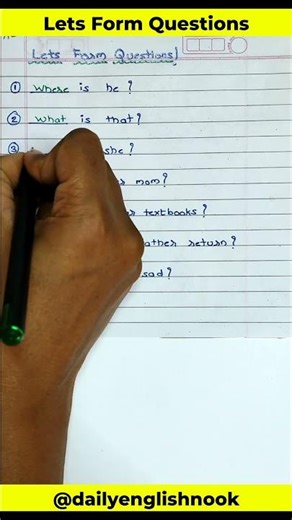 Lets Form Questions
Lets Form Questions!
① Where is he?
② What is that?
③ she?
mom?
textbooks?
return?
sad?
@dailyenglishnook